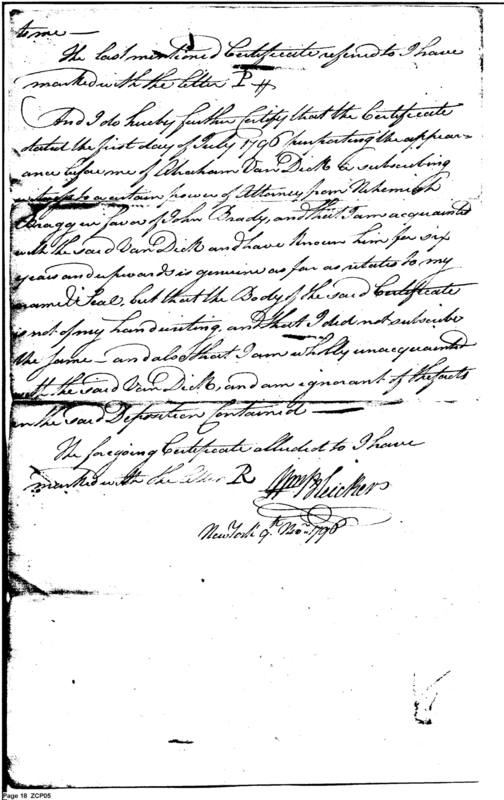 to me —
The last mentioned Certificate refered to I have
marked with the letter P
And I do hereby further Certify that the Certificate
dated the first day of July 1796 purporting the appear-
ance before me of Abraham Van Dick a subscribing
witness to a certain power of Attorney from Nehemiah
in favor of John Brady, and that I am acquainted
with the said Van Dick and have known him for six
years and upwards is genuine as far as relates to my
name & Seal, but that the Body of the said Certificate
is not of my handwriting, and that I did not subscribe
the same — and also that I am wholly unacquainted
with the said Van Dick, and am ignorant of the facts
in the said Deposition Contained —
The foregoing Certificate alluded to I have
marked with the letter R Wm Bleicker
New York 9th Novr. 1796
Page 18 ZCP05